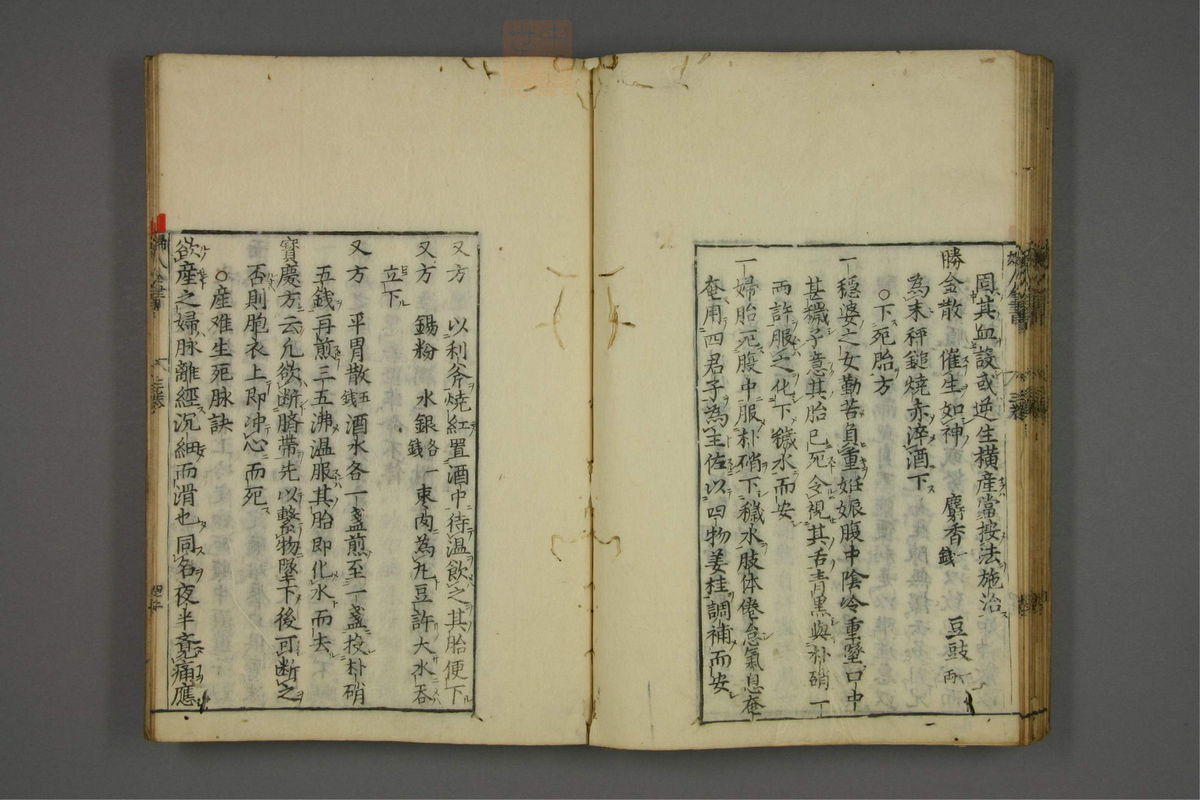 固其血設或逆生橫産當按法施治
勝金散　催生如神　麝香一錢　豆豉一両
為末秤鎚燒赤淬酒下
○下死胎方
一穩婆之女勤苦負重妊娠腹中陰冷重墜口中
甚穢予意其胎已死令視其舌青黑與朴硝一
两許服之化下穢水而安
一婦胎死腹中服朴硝下穢水肢体倦怠氣息奄
奄用四君子為主佐以四物姜桂調補而安
又方　以利斧燒紅置酒中待温飲之其胎便下
又方　錫粉　水銀各一錢　棗肉為丸豆許大水吞
立下
又方　平胃散五錢酒水各一盞煎至一盞投朴硝
五錢再煎三五沸温服其胎即化水而去
寳慶方云凢欲断臍帶先以繫物墜下後可断之
否則胞衣上即冲心而死
○産难生死脉訣
欲産之婦脉離經沉細而滑也同名夜半竟痛應